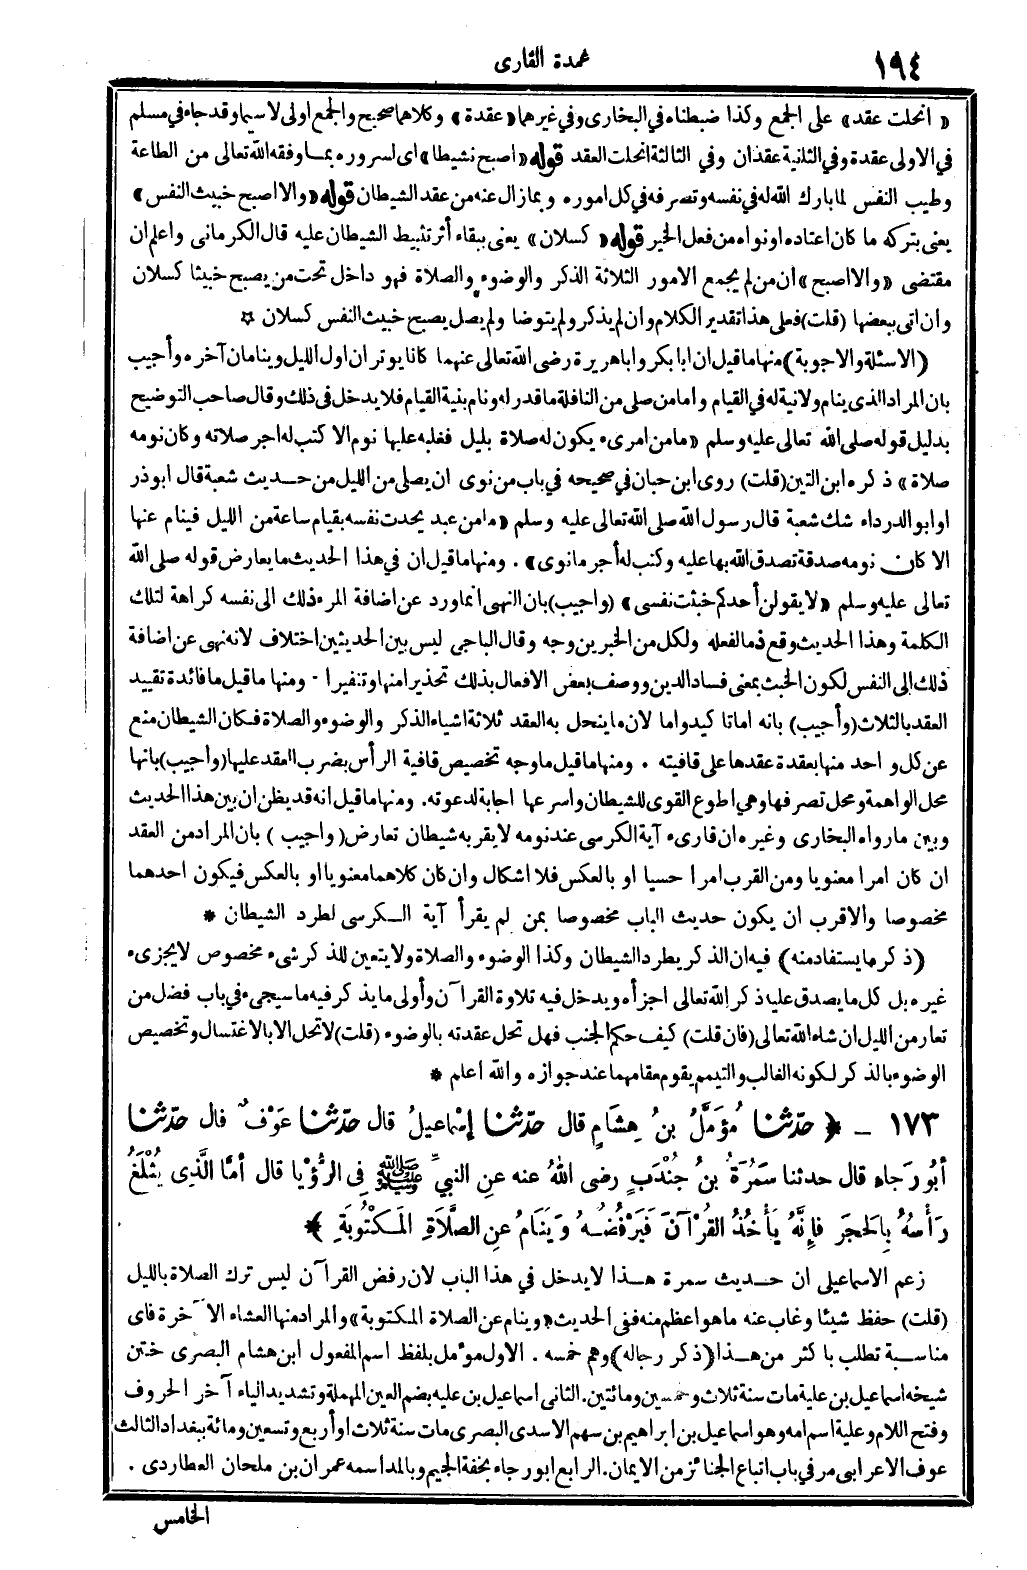 ١٩٤
عمدة القارى
« انحلت عقد » على الجمع وكذا ضبطناه في البخارى وفي غيرهما « عقدة » وكلاهما صحيح والجمع اولى لا سيما وقد جاء في مسلم
في الاولى عقدة وفي الثانية عقدتان وفي الثالثة انحلت العقد قوله « اصبح نشيطا » اى لسروره بما وفقه الله تعالى من الطاعة
وطيب النفس لما بارك الله له في نفسه وتصرفه في كل اموره وبما زال عنه من عقد الشيطان قوله « والا اصبح خبيث النفس »
يعنى بتركه ما كان اعتاده او نواه من فعل الخير قوله « كسلان » يعنى ببقاء أثر تثبيط الشيطان عليه قال الكرمانى واعلم ان
مقتضى « والا اصبح » ان من لم يجمع الامور الثلاثة الذكر والوضوء والصلاة فهو داخل تحت من يصبح خبيثا كسلان
وان اتى ببعضها (قلت) فعلى هذا تقدير الكلام وان لم يذكر ولم يتوضا ولم يصل يصبح خبيث النفس كسلان ☆
(الاسئلة والاجوبة) منها ما قيل ان ابا بكر وابا هريرة رضى الله تعالى عنهما كانا يوتران اول الليل وينامان آخره وأجيب
بان المراد الذى ينام ولا نية له في القيام واما من صلى من النافلة ما قدر له ونام بنية القيام فلا يدخل فى ذلك وقال صاحب التوضيح
بدليل قوله صلى الله تعالى عليه وسلم « ما من امرىء يكون له صلاة بليل فغلبه عليها نوم الا كتب له اجر صلاته وكان نومه
صلاة » ذكره ابن التين (قلت) روى ابن حبان في صحيحه في باب من نوى ان يصلى من الليل من حديث شعبة قال ابو ذر
او ابو الدرداء شك شعبة قال رسول الله صلى الله تعالى عليه وسلم « ما من عبد يحدث نفسه بقيام ساعة من الليل فينام عنها
الا كان نومه صدقة تصدق الله بها عليه وكتب له أجر ما نوى » . ومنها ما قيل ان في هذا الحديث ما يعارض قوله صلى الله
تعالى عليه وسلم « لا يقولن أحدكم خبثت نفسى » (واجيب) بان النهى انما ورد عن اضافة المرء ذلك الى نفسه كراهة لتلك
الكلمة وهذا الحديث وقع ذما لفعله ولكل من الخبرين وجه وقال الباجى ليس بين الحديثين اختلاف لانه نهى عن اضافة
ذلك الى النفس لكون الخبث بمعنى فساد الدين ووصف بعض الافعال بذلك تحذيرا منها وتنفيرا . ومنها ما قيل ما فائدة تقييد
العقد بالثلاث (وأجيب) بانه اما تاكيد واما لان ما ينحل به العقد ثلاثة اشياء الذكر والوضوء والصلاة فكان الشيطان منع
عن كل واحد منها بعقدة عقدها على قافيته . ومنها ما قيل ما وجه تخصيص قافية الرأس بضرب العقد عليها (وأجيب) بانها
محل الواهمة ومحل تصرفها وهي اطوع القوى للشيطان واسرعها اجابة لدعوته. ومنها ما قيل انه قد يظن ان بين هذا الحديث
وبين ما رواه البخارى وغيره ان قارىء آية الكرسى عند نومه لا يقربه شيطان تعارض (واجيب) بان المراد من العقد
ان كان امرا معنويا ومن القرب امرا حسيا او بالعكس فلا اشكال وان كان كلاهما معنويا او بالعكس فيكون احدهما
مخصوصا والاقرب ان يكون حديث الباب مخصوصا بمن لم يقرأ آية الكرسى لطرد الشيطان *
(ذكر ما يستفاد منه) فيه ان الذكر يطرد الشيطان وكذا الوضوء والصلاة ولا يتعين للذكر شىء مخصوص لا يجزىء
غيره بل كل ما يصدق عليه ذكر الله تعالى اجزأه ويدخل فيه تلاوة القرآن وأولى ما يذكر فيه ما سيجىء في باب فضل من
تعار من الليل ان شاء الله تعالى (فان قلت) كيف حكم الجنب فهل تحل عقدته بالوضوء (قلت) لا تحل الا بالاغتسال وتخصيص
الوضوء بالذكر لكونه الغالب والتيمم يقوم مقامهما عند جوازه والله اعلم *
١٧٣ ـ ﴿ حدّثنا مُؤَمَّلُ بنُ هِشَامٍ قال حدّثنا إِسْمَاعِيلُ قال حدّثنا عَوْفٌ قال حدّثنا
أبُو رَجاءٍ قال حدثنا سَمُرَةُ بنُ جُنْدَبٍ رضى اللهُ عنه عنِ النبيِّ ﷺ فِى الرُّؤْيا قال أمَّا الَّذِى يُثْلَغُ
رَأسُهُ بِالحَجَرِ فإِنَّهُ يَأْخُذُ القُرْآنَ فَيَرْفُضُهُ وَيَنَامُ عنِ الصَّلَاةِ المَكْتُوبَةِ ﴾
زعم الاسماعيلى ان حديث سمرة هذا لا يدخل في هذا الباب لان رفض القرآن ليس ترك الصلاة بالليل
(قلت) حفظ شيئا وغاب عنه ما هو اعظم منه ففى الحديث « وينام عن الصلاة المكتوبة » والمراد منها العشاء الآخرة فاى
مناسبة تطلب باكثر من هذا (ذكر رجاله) وهم خمسه . الاول مؤمل بلفظ اسم المفعول ابن هشام البصرى ختن
شيخه اسماعيل بن علية مات سنة ثلاث وخمسين ومائتين. الثانى اسماعيل بن عليه بضم العين المهملة وتشديد الياء آخر الحروف
وفتح اللام وعلية اسم امه وهو اسماعيل بن ابراهيم بن سهم الاسدى البصرى مات سنة ثلاث او أربع وتسعين ومائة ببغداد الثالث
عوف الاعرابى مر في باب اتباع الجنائز من الايمان. الرابع ابو رجاء بخفة الجيم وبالمد اسمه عمران بن ملحان العطاردى .
الخامس